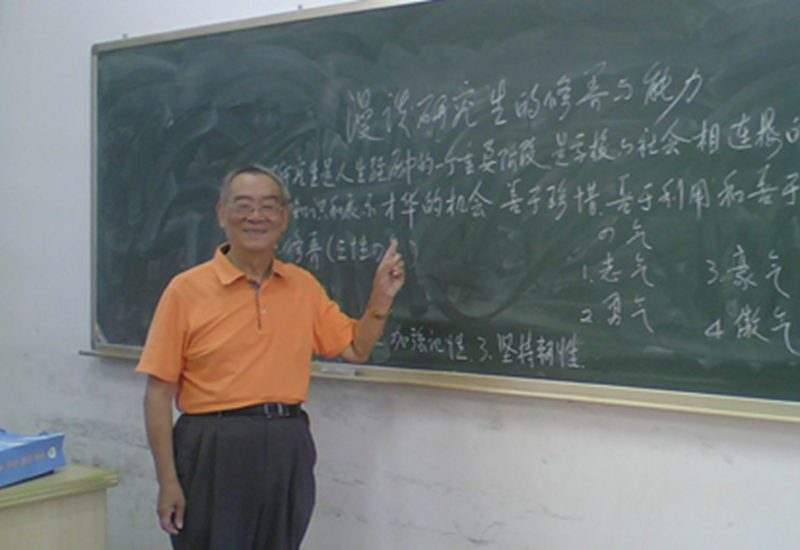 漫谈研究生的修养与能力
研究生是人生经历中的一个主要阶段,是学校与社会相连接的
知识和表示才华的机会,善于珍惜、善于利用和善于
修养(三性の气)
の气
1.志气 3.豪气
2.勇气 4.傲气
加强记性, 3.坚持韧性.